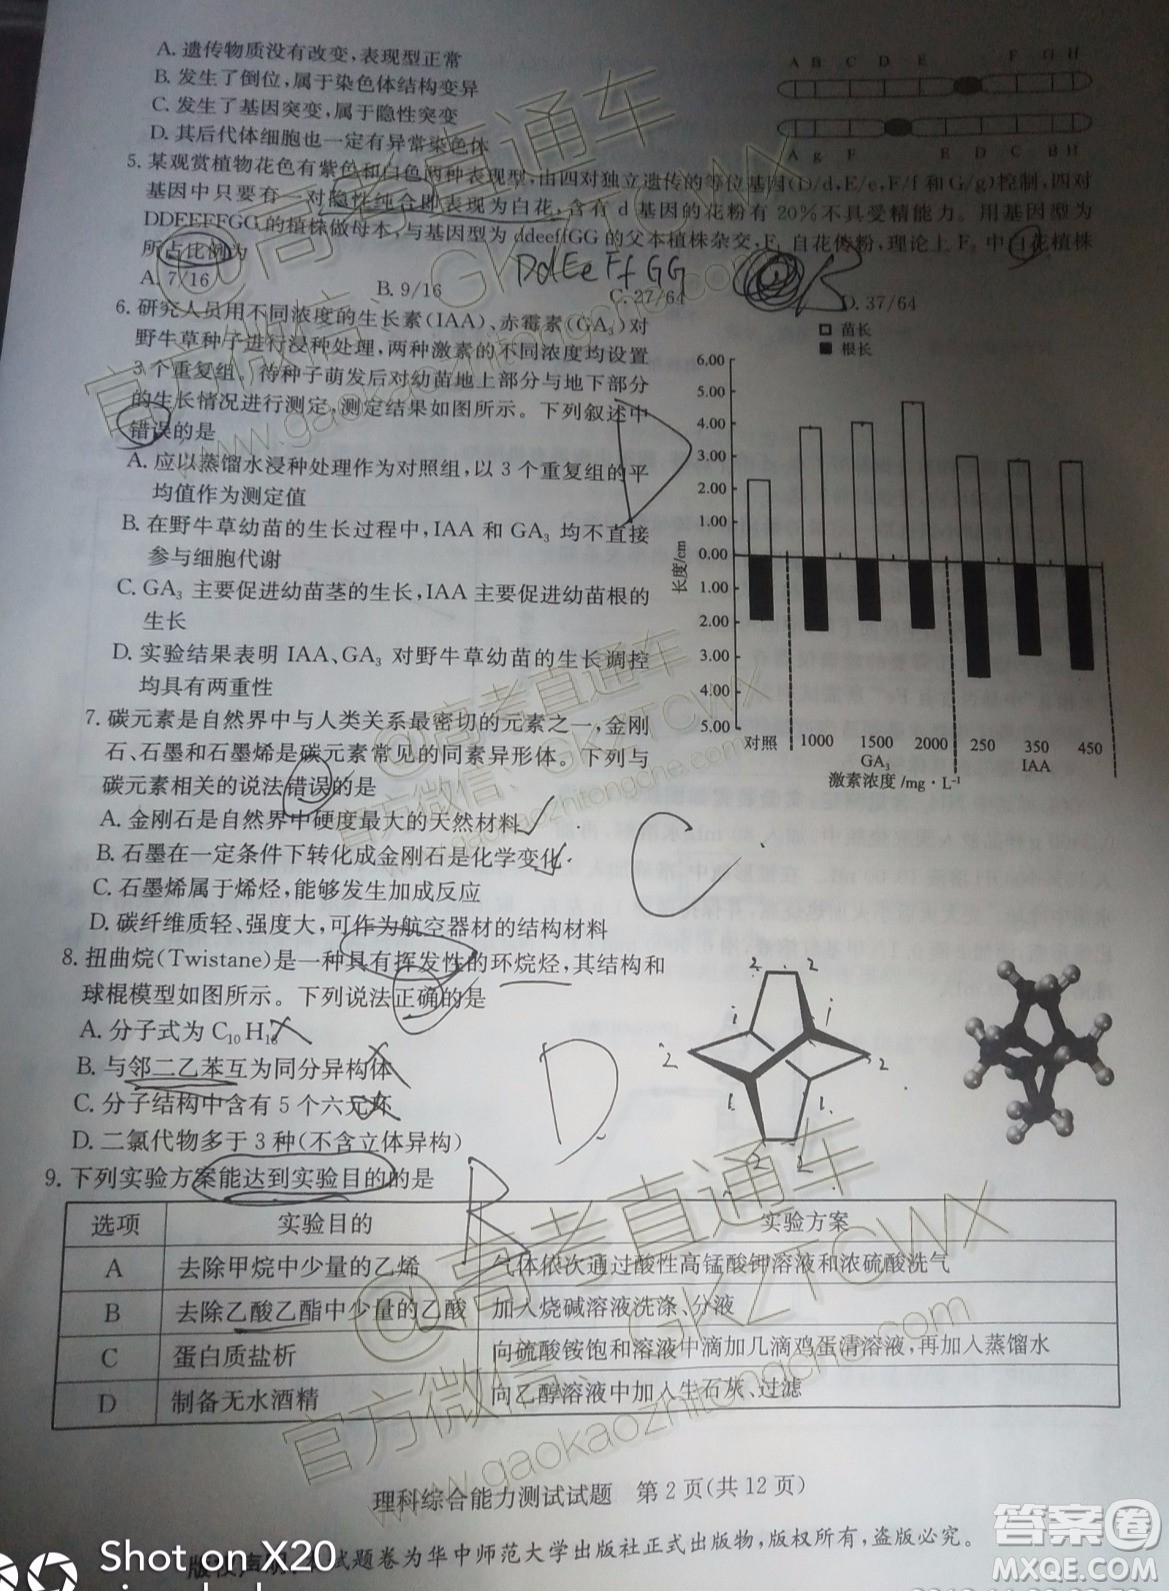 A. 遗传物质没有改变,表现型正常
B. 发生了倒位,属于染色体结构变异
C. 发生了基因突变,属于隐性突变
D. 其后代体细胞也一定有异常染色体
A B C D E F G H
A g F E D C B H
5. 某观赏植物花色有紫色和白色两种表现型,由四对独立遗传的等位基因(D/d,E/e,F/f和G/g)控制,四对
基因中只要有一对隐性纯合即表现为白花,含有d基因的花粉有20%不具受精能力。用基因型为
DDEEFFGG的植株做母本,与基因型为ddeeffGG的父本植株杂交,F₁自花传粉,理论上F₂中白花植株
所占比例为
DdEeFfGG
B
A. 7/16 B. 9/16 C. 27/64 D. 37/64
6. 研究人员用不同浓度的生长素(IAA)、赤霉素(GA₃)对
野牛草种子进行浸种处理,两种激素的不同浓度均设置
3个重复组。待种子萌发后对幼苗地上部分与地下部分
的生长情况进行测定,测定结果如图所示。下列叙述中
错误的是
A. 应以蒸馏水浸种处理作为对照组,以3个重复组的平
均值作为测定值
B. 在野牛草幼苗的生长过程中,IAA和GA₃均不直接
参与细胞代谢
C. GA₃主要促进幼苗茎的生长,IAA主要促进幼苗根的
生长
D. 实验结果表明IAA、GA₃对野牛草幼苗的生长调控
均具有两重性
D
苗长
根长
6.00
5.00
4.00
3.00
2.00
1.00
0.00
1.00
2.00
3.00
4.00
5.00
长度/cm
对照 1000 1500 2000 250 350 450
GA₃ IAA
激素浓度/mg·L⁻¹
7. 碳元素是自然界中与人类关系最密切的元素之一,金刚
石、石墨和石墨烯是碳元素常见的同素异形体。下列与
碳元素相关的说法错误的是
A. 金刚石是自然界中硬度最大的天然材料
B. 石墨在一定条件下转化成金刚石是化学变化
C. 石墨烯属于烯烃,能够发生加成反应
D. 碳纤维质轻、强度大,可作为航空器材的结构材料
C
8. 扭曲烷(Twistane)是一种具有挥发性的环烷烃,其结构和
球棍模型如图所示。下列说法正确的是
A. 分子式为C₁₀H₁₈
B. 与邻二乙苯互为同分异构体
C. 分子结构中含有5个六元环
D. 二氯代物多于3种(不含立体异构)
D
2 2
1 1
2 2
1 1
2 2
9. 下列实验方案能达到实验目的的是
B
选项 实验目的 实验方案
A 去除甲烷中少量的乙烯 气体依次通过酸性高锰酸钾溶液和浓硫酸洗气
B 去除乙酸乙酯中少量的乙酸 加入烧碱溶液洗涤、分液
C 蛋白质盐析 向硫酸铵饱和溶液中滴加几滴鸡蛋清溶液,再加入蒸馏水
D 制备无水酒精 向乙醇溶液中加入生石灰、过滤
理科综合能力测试试题 第2页(共12页)
试题卷为华中师范大学出版社正式出版物,版权所有,盗版必究。
Shot on X20
@高考直通车
官方微信:GKZTCWX
www.gaokaozhitongche.com
答案圈
MXQE.COM